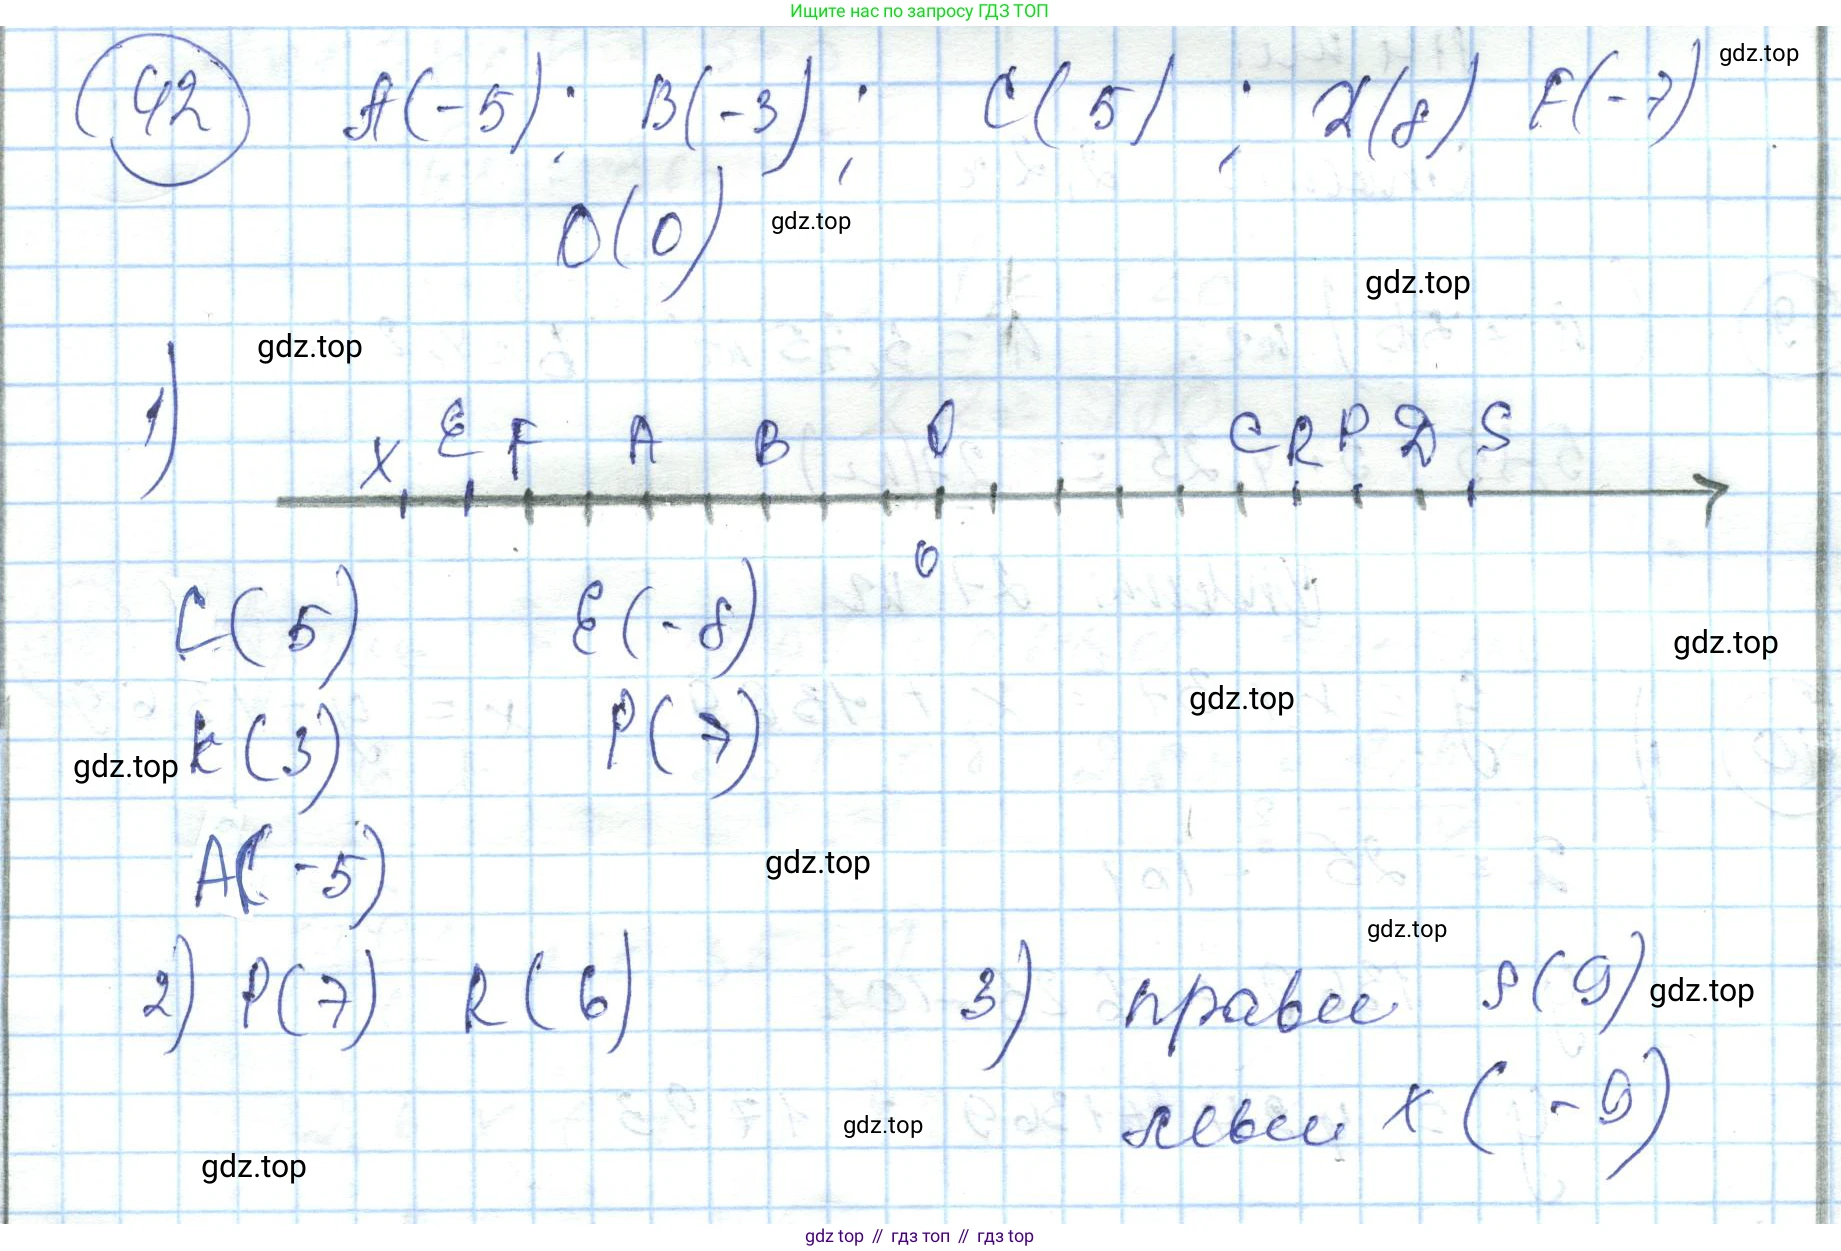 Ищите нас по запросу ГДЗ ТОП
gdz.top
42 A(-5); B(-3); C(5); D(8) F(-7)
O(0)
gdz.top
gdz.top
gdz.top
1)
X E F A B O C R P D S
0
C(5) E(-8)
gdz.top
K(3) P(7)
gdz.top
gdz.top
A(-5)
gdz.top
gdz.top
2) P(7) R(6) 3) правее S(9)
gdz.top
левее X(-9)
gdz.top
gdz.top
gdz top // гдз топ // gdz top